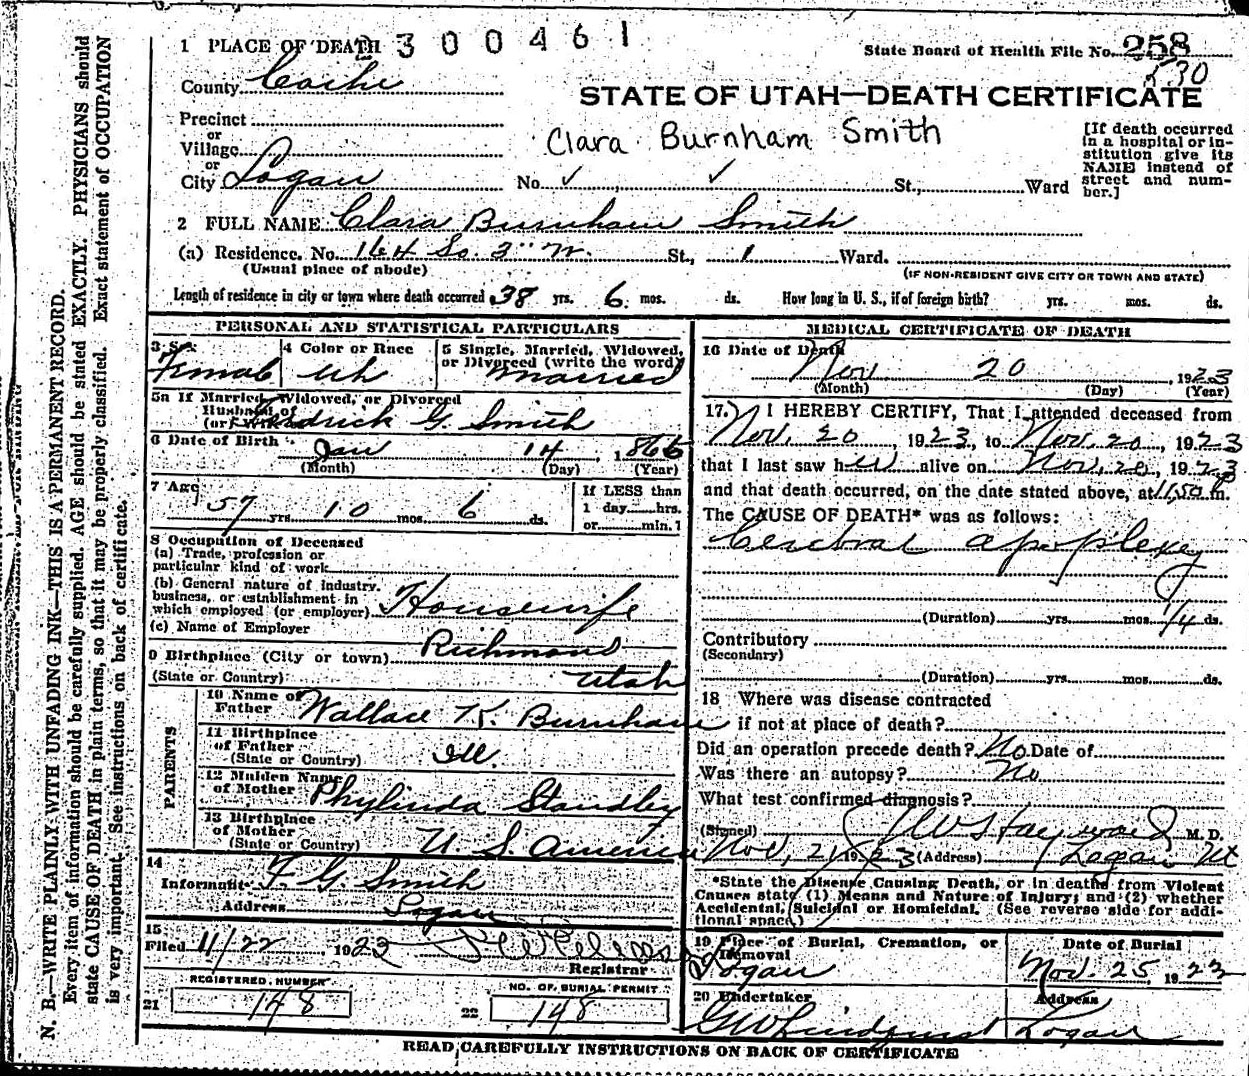 N. B.—WRITE PLAINLY WITH UNFADING INK—THIS IS A PERMANENT RECORD.
Every item of information should be carefully supplied. AGE should be stated EXACTLY. PHYSICIANS should
state CAUSE OF DEATH in plain terms, so that it may be properly classified. Exact statement of OCCUPATION
is very important. See instructions on back of certificate.
2300461
1 PLACE OF DEATH
State Board of Health File No. 258
530
County Cache
STATE OF UTAH—DEATH CERTIFICATE
Precinct
or
Village
or
City Logan
Clara Burnham Smith
No. ✓ ✓ St., Ward
[If death occurred
in a hospital or in-
stitution give its
NAME instead of
street and num-
ber.]
2 FULL NAME Clara Burnham Smith
(a) Residence. No. 164 So. 3" W. St., 1 Ward.
(Usual place of abode)
(IF NON-RESIDENT GIVE CITY OR TOWN AND STATE)
Length of residence in city or town where death occurred 38 yrs. 6 mos. ds. How long in U. S., if of foreign birth? yrs. mos. ds.
PERSONAL AND STATISTICAL PARTICULARS
3 Sex
Female
4 Color or Race
Wh
5 Single, Married, Widowed,
or Divorced (write the word)
Married
5a If Married, Widowed, or Divorced
Husband of
(or) Wife of Fredrick G. Smith
6 Date of Birth Jan 14, 1866
(Month) (Day) (Year)
7 Age
57 yrs. 10 mos. 6 ds.
If LESS than
1 day hrs.
or min.?
8 Occupation of Deceased
(a) Trade, profession or
particular kind of work
(b) General nature of industry,
business, or establishment in
which employed (or employer) Housewife
(c) Name of Employer
9 Birthplace (City or town) Richmond
(State or Country) Utah
PARENTS
10 Name of
Father Wallace K. Burnham
11 Birthplace
of Father
(State or Country) Ill.
12 Maiden Name
of Mother Phylinda Standley
13 Birthplace
of Mother
(State or Country) U. S. America
14
Informant F. G. Smith
Address Logan
15
Filed 11/22 1923
Registrar
REGISTERED NUMBER
21 148
NO. OF BURIAL PERMIT
22 148
MEDICAL CERTIFICATE OF DEATH
16 Date of Death
Nov 20, 1923
(Month) (Day) (Year)
17. I HEREBY CERTIFY, That I attended deceased from
Nov. 20, 1923, to Nov. 20, 1923
that I last saw her alive on Nov. 20, 1923
and that death occurred, on the date stated above, at 11.50 m.
The CAUSE OF DEATH* was as follows:
Cerebral apoplexy
(Duration) yrs. mos. 1/4 ds.
Contributory
(Secondary)
(Duration) yrs. mos. ds.
18 Where was disease contracted
if not at place of death?
Did an operation precede death? No Date of
Was there an autopsy? No
What test confirmed diagnosis?
(Signed) J W Hayward M. D.
Nov, 21, 1923 (Address) Logan Ut
*State the Disease Causing Death, or in deaths from Violent
Causes state (1) Means and Nature of Injury; and (2) whether
Accidental, Suicidal or Homicidal. (See reverse side for addi-
tional space.)
19 Place of Burial, Cremation, or
Removal
Logan
Date of Burial
Nov. 25, 1923
20 Undertaker
G W Lindquist
Address
Logan
READ CAREFULLY INSTRUCTIONS ON BACK OF CERTIFICATE